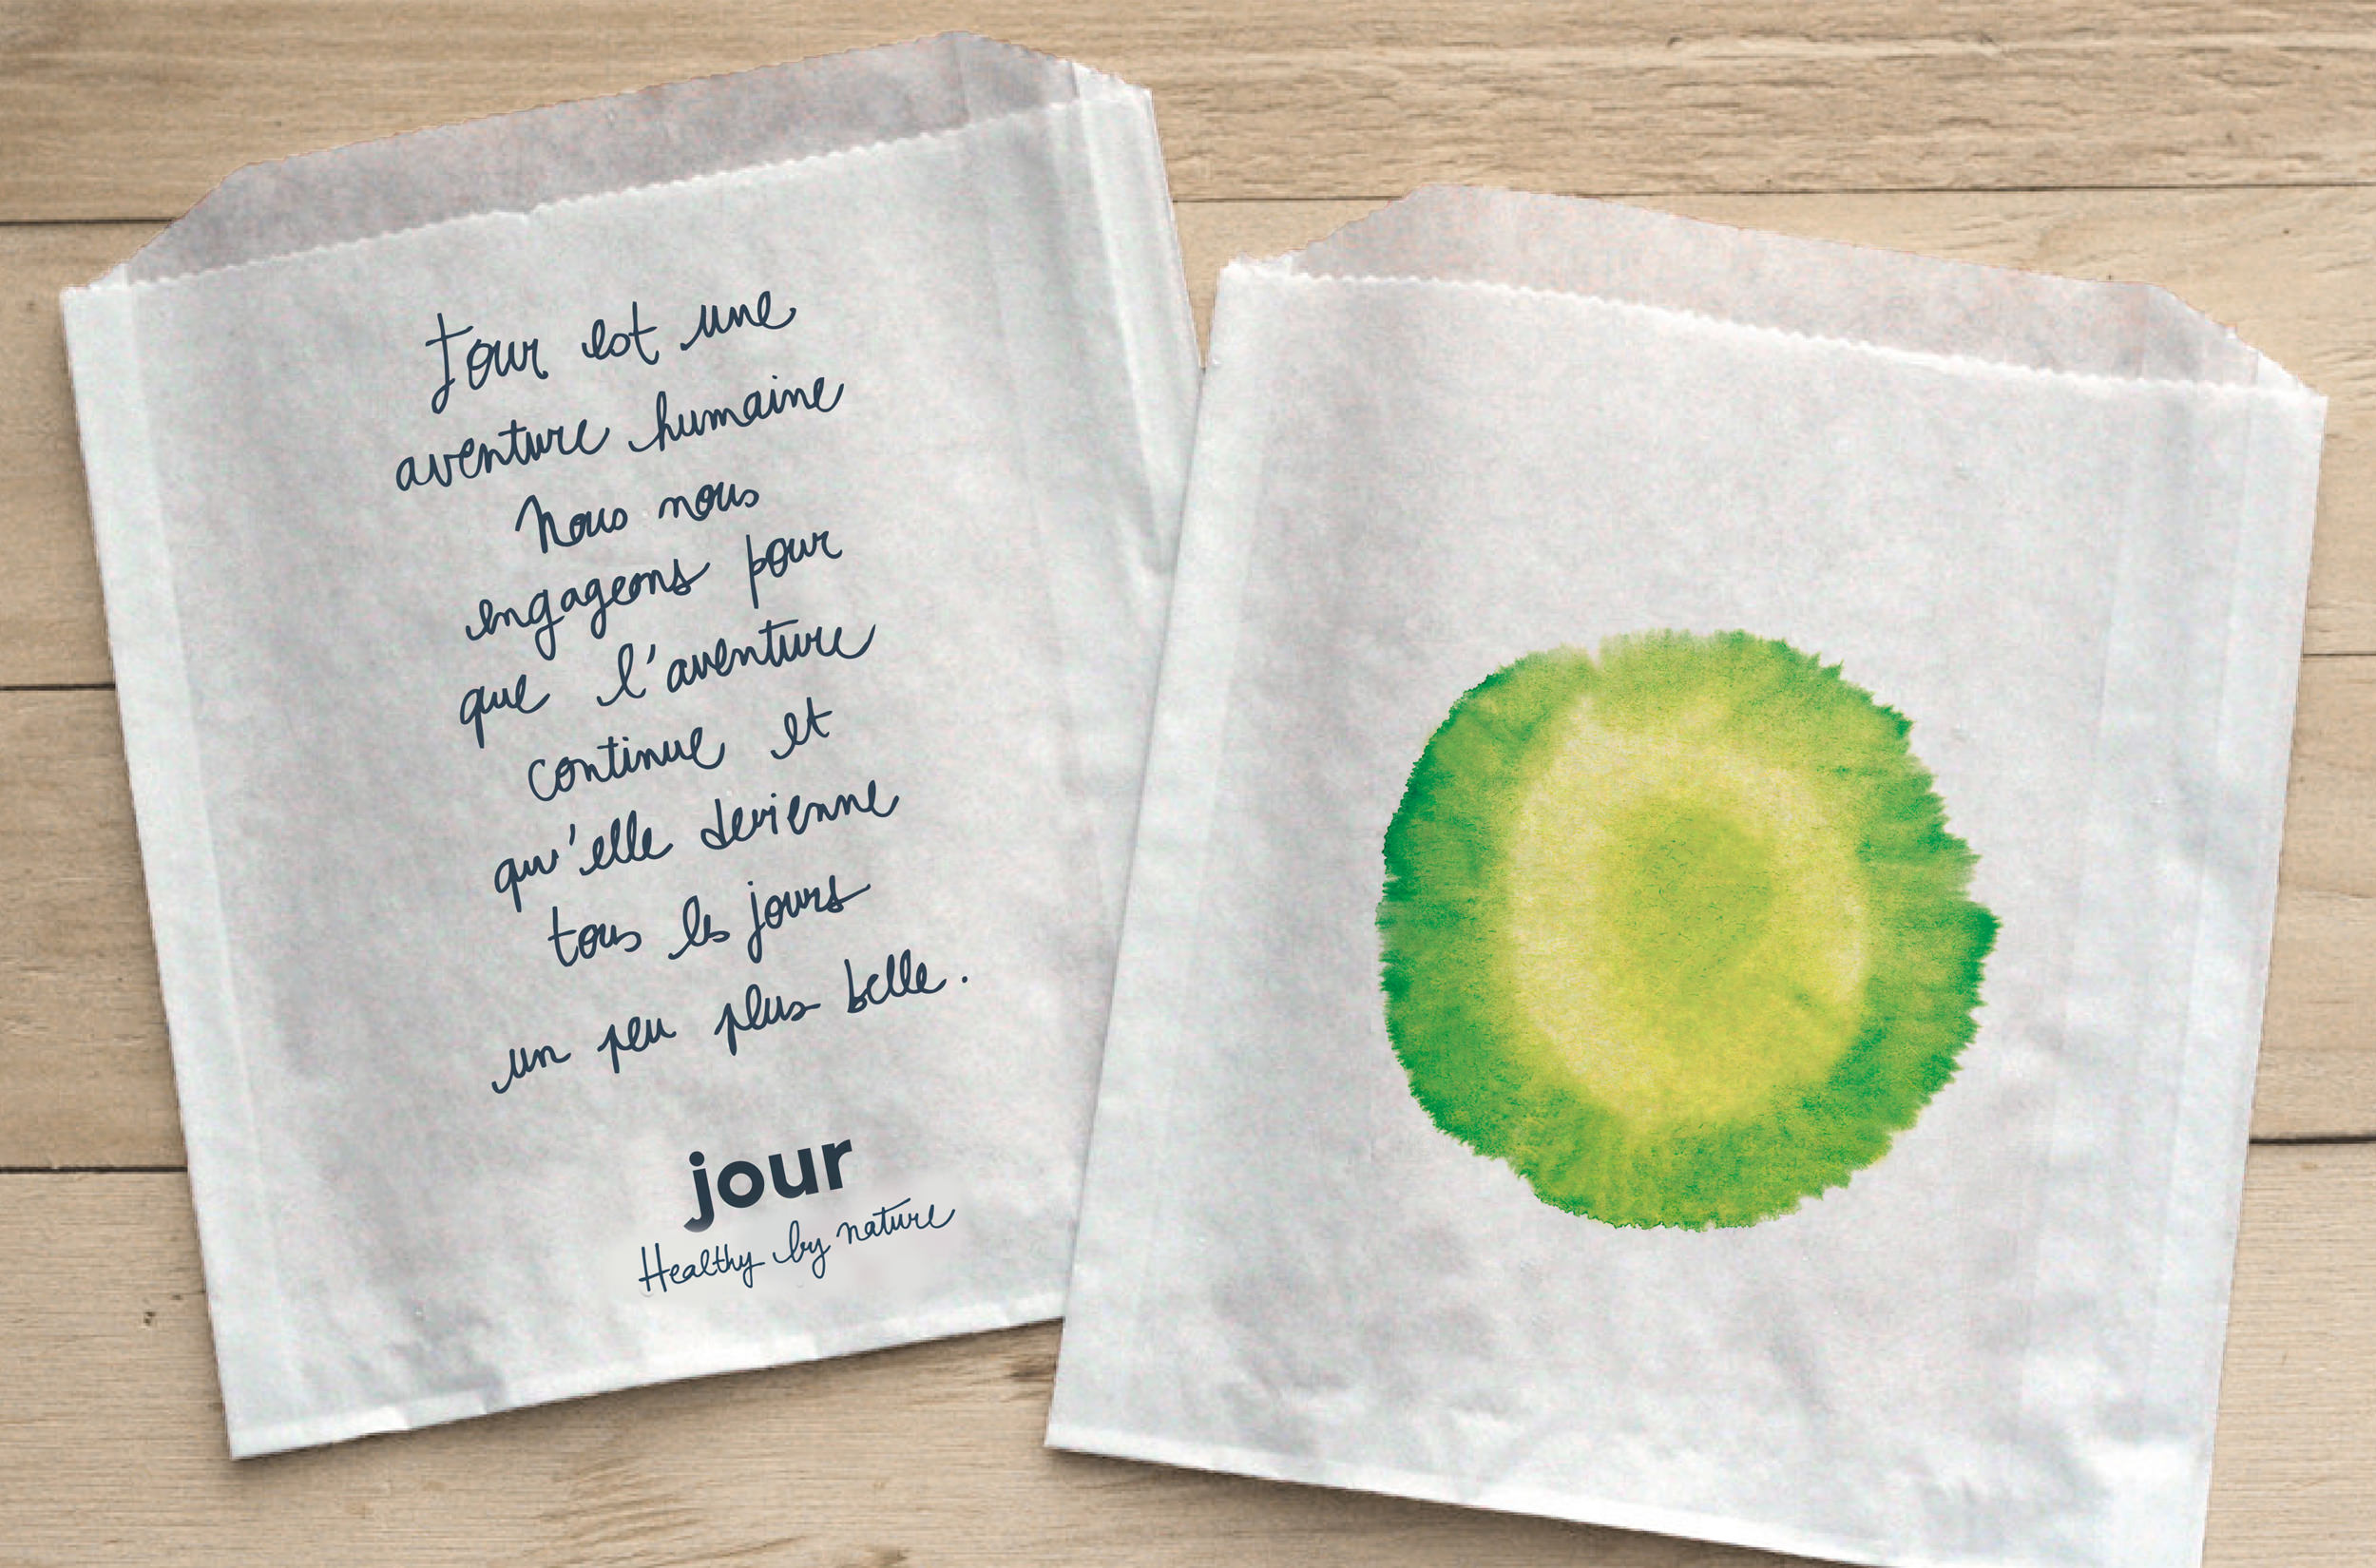 Jour est une
aventure humaine
Nous nous
engageons pour
que l'aventure
continue et
qu'elle devienne
tous les jours
un peu plus belle.
jour
Healthy by nature